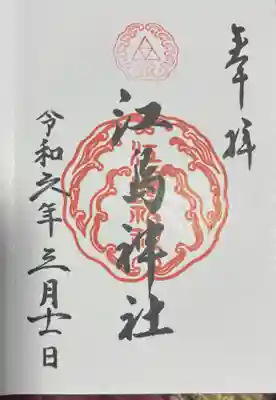 奉拝
江島神社
令和六年三月十一日